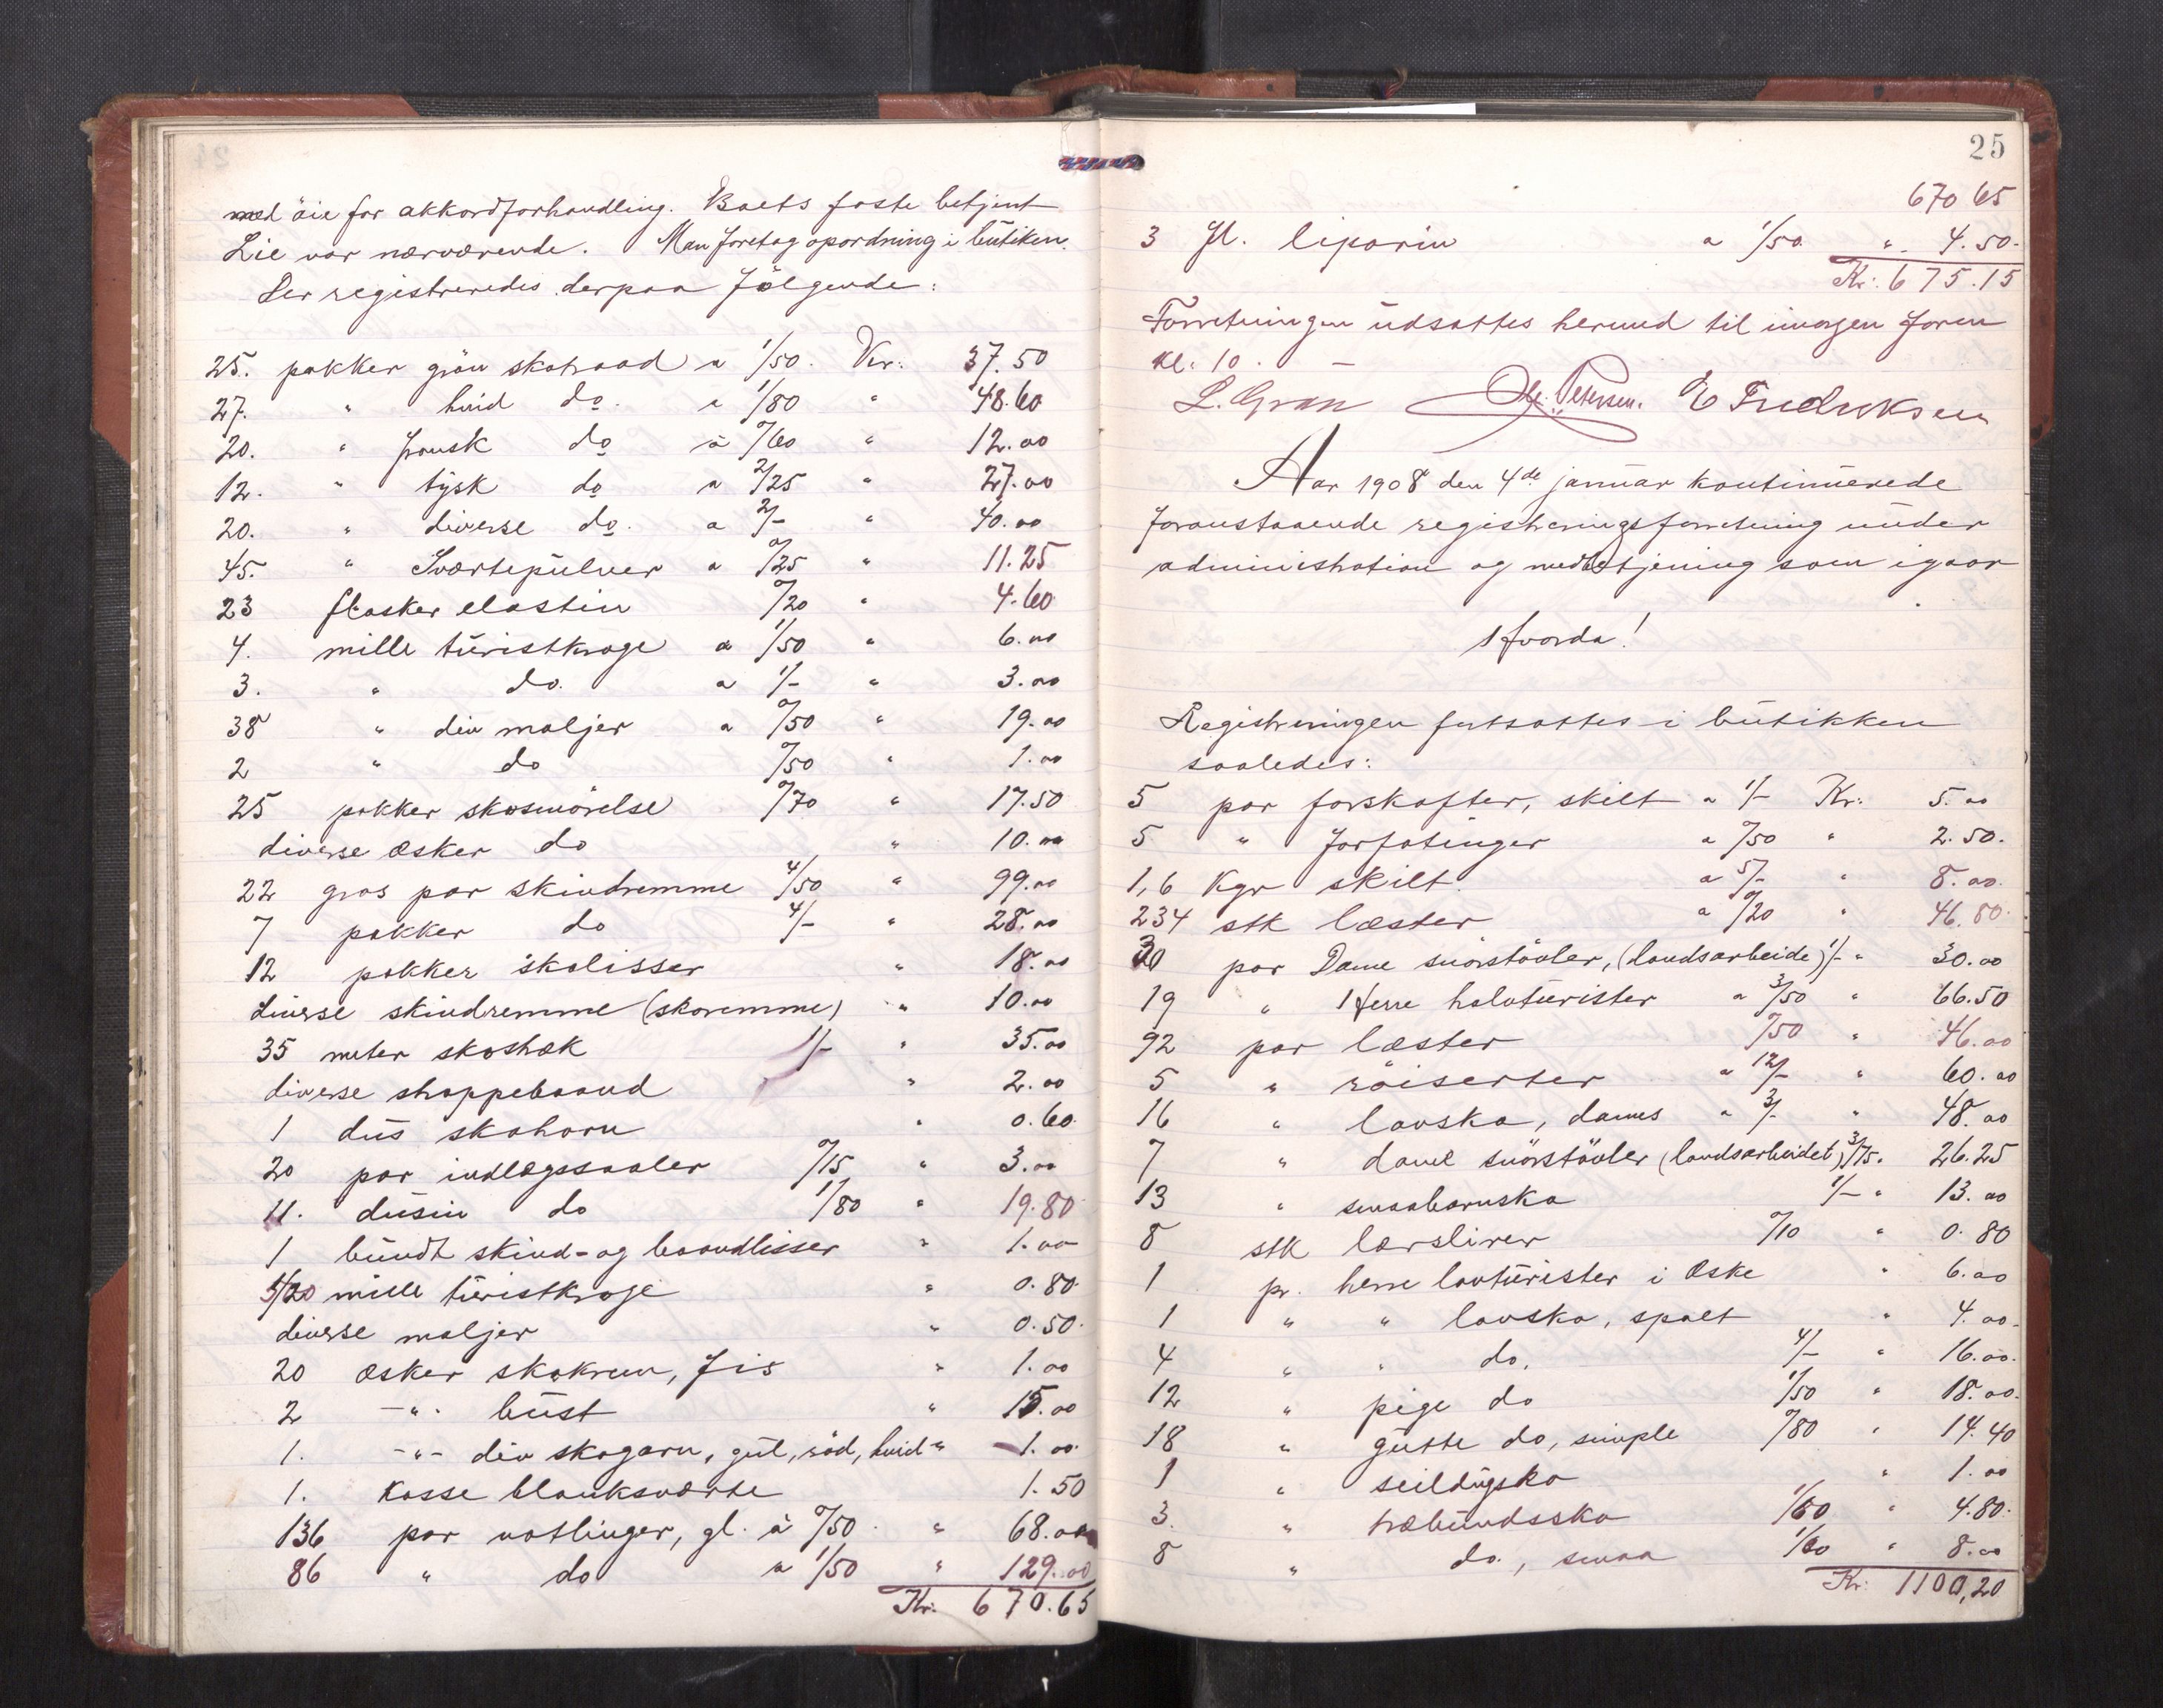 med öie for akkordforhandling. Boets faste betjent
Lie var nærværende. Man foretog opordning i butiken.
Der registreredes derpaa følgende:
25. pakker grön skotraad a 1/50. Kr: 37.50
27. " hvid do. a 1/80 " 48.60
20. " fransk do à 0/60 " 12.00
12. " tysk do a 2/25 " 27.00
20. " diverse do. a 2/- " 40.00
45. " Sværtepulver a 0/25 " 11.25
23 flasker elastin 0/20 " 4.60
4. mille turistkroge a 1/50 " 6.00
3. " do. a 1/- " 3.00
38 " div maljer a 0/50 " 19.00
2 " do 0/50 " 1.00
25 pakker skosmörelse 0/70 " 17.50
diverse æsker do " 10.00
22 gros par skindremme 4/50 " 99.00
7 pakker do 4/- " 28.00
12 pakker skolisser " 18.00
diverse skindremme (skoremme) " 10.00
35 meter skostræk 1/- " 35.00
diverse stroppebaand " 2.00
1 dus skohorn " 0.60
20 par indlægssaaler 0/15 " 3.00
11. dusin do 1/80 " 19.80
1 bundt skind- og baandlisser " 1.00
mille turistkroge " 0.80
diverse maljer " 0.50.
20 æsker skokrem, Fis " 1.00
2 -"- bust " 15.00
1. -"- div skogarn, gul, röd, hvid " 1.00
1. Kasse blanksværte 1.50
136 par notlinger, gl. à 0/50 " 68.00
86 " do a 1/50 " 129.00
Kr. 670.65
25
670 65
3 fl. liporin a 1/50 " 4.50.
Kr. 675.15
Forretningen udsattes hermed til imorgen form
kl: 10.
L. Gran Petersen. E Fredriksen
Aar 1908 den 4de januar kontinuerede
foranstaaende registreringsforretning under
administration og medbetjening som igaar
Hvorda!
Registreringen fortsattes i butikken
saaledes:
5 par forskafter, skilt a 1/- Kr: 5.00
5 " forfatinger a 0/50 " 2.50.
1,6 Kgr skilt. a 5/- " 8.00.
234 stk læster a 0/20 " 46.80.
30 par Dame snörstövler, (landsarbeide) 1/- " 30.00
19 " Herre halvturister a 3/50 " 66.50
92 par læster 0/50 " 46.00
5 " röiserter a 12/- " 60.00
16 " lavsko, dames a 3/- " 48.00
7 " dame snörstövler (landsarbeidet) 3/75. 26.25
13 " smaabarnsko 1/- " 13.00
8 stk lærslirer 0/10 " 0.80
1 pr. herre lavturister i æske " 6.00
1 " " lavsko, spalt " 4.00.
4 " " do. 4/- " 16.00.
12 " pige do 1/50 " 18.00.
18 " gutte do, simple 0/80 " 14.40
1 " seildugsko " 1.00
3. " træbundssko 1/60 " 4.80.
8 " do., smaa " 8.00
Kr: 1100,20